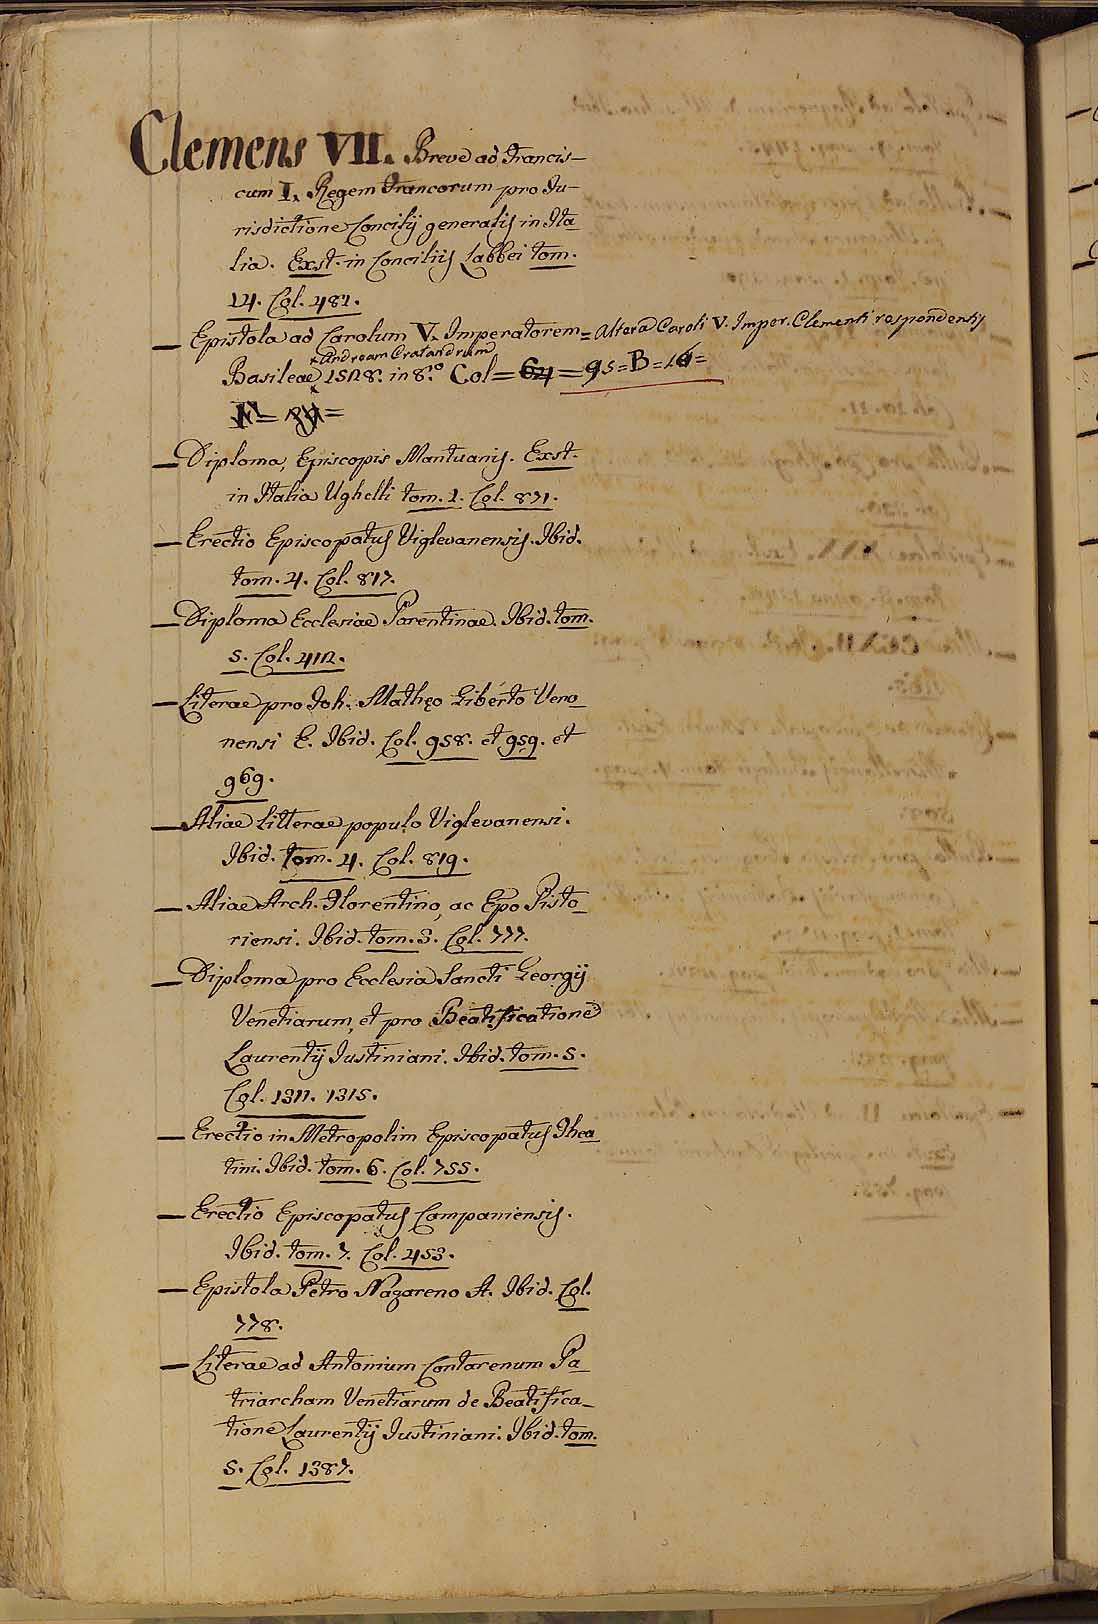 Clemens VII. Breve ad Francis-
cum I. Regem Francorum pro Ju-
risdictione Concilij generalis in Ita
lia. Exst. in Conciliis Labbei tom.
14. Col. 487.
— Epistola ad Carolum V. Imperatorem = Altera Caroli V. Imper. Clementi respondentis
Andream Cratandrum
Basileae 1528. in 8.º Col = 64 = 95 = B = 16 =
— Diploma, Episcopis Mantuanis. Exst.
in Italia Ughelli tom. 1. Col. 871.
— Erectio Episcopatus Viglevanensis. Ibid.
tom. 4. Col. 817.
— Diploma Ecclesiae Parentinae. Ibid. tom.
5. Col. 412.
— Literae pro Joh. Mathęo Giberto Vero
nensi E. Ibid. Col. 958. et 959. et
969.
— Aliae litterae populo Viglevanensi.
Ibid. tom. 4. Col. 819.
— Aliae Arch. Florentino, ac Epo Pisto
riensi. Ibid. tom. 3. Col. 777.
— Diploma pro Ecclesia Sancti Georgij
Venetiarum, et pro Beatificatione
Laurentij Justiniani. Ibid. tom. 5.
Col. 1312. 1315.
— Erectio in Metropolim Episcopatus Thea
tini. Ibid. tom. 6. Col. 755.
— Erectio Episcopatus Campaniensis.
Ibid. tom. 7. Col. 453.
— Epistola Petro Nazareno A. Ibid. Col.
778.
— Literae ad Antonium Contarenum Pa
triarcham Venetiarum de Beatifica-
tione Laurentij Justiniani. Ibid. tom.
5. Col. 1387.